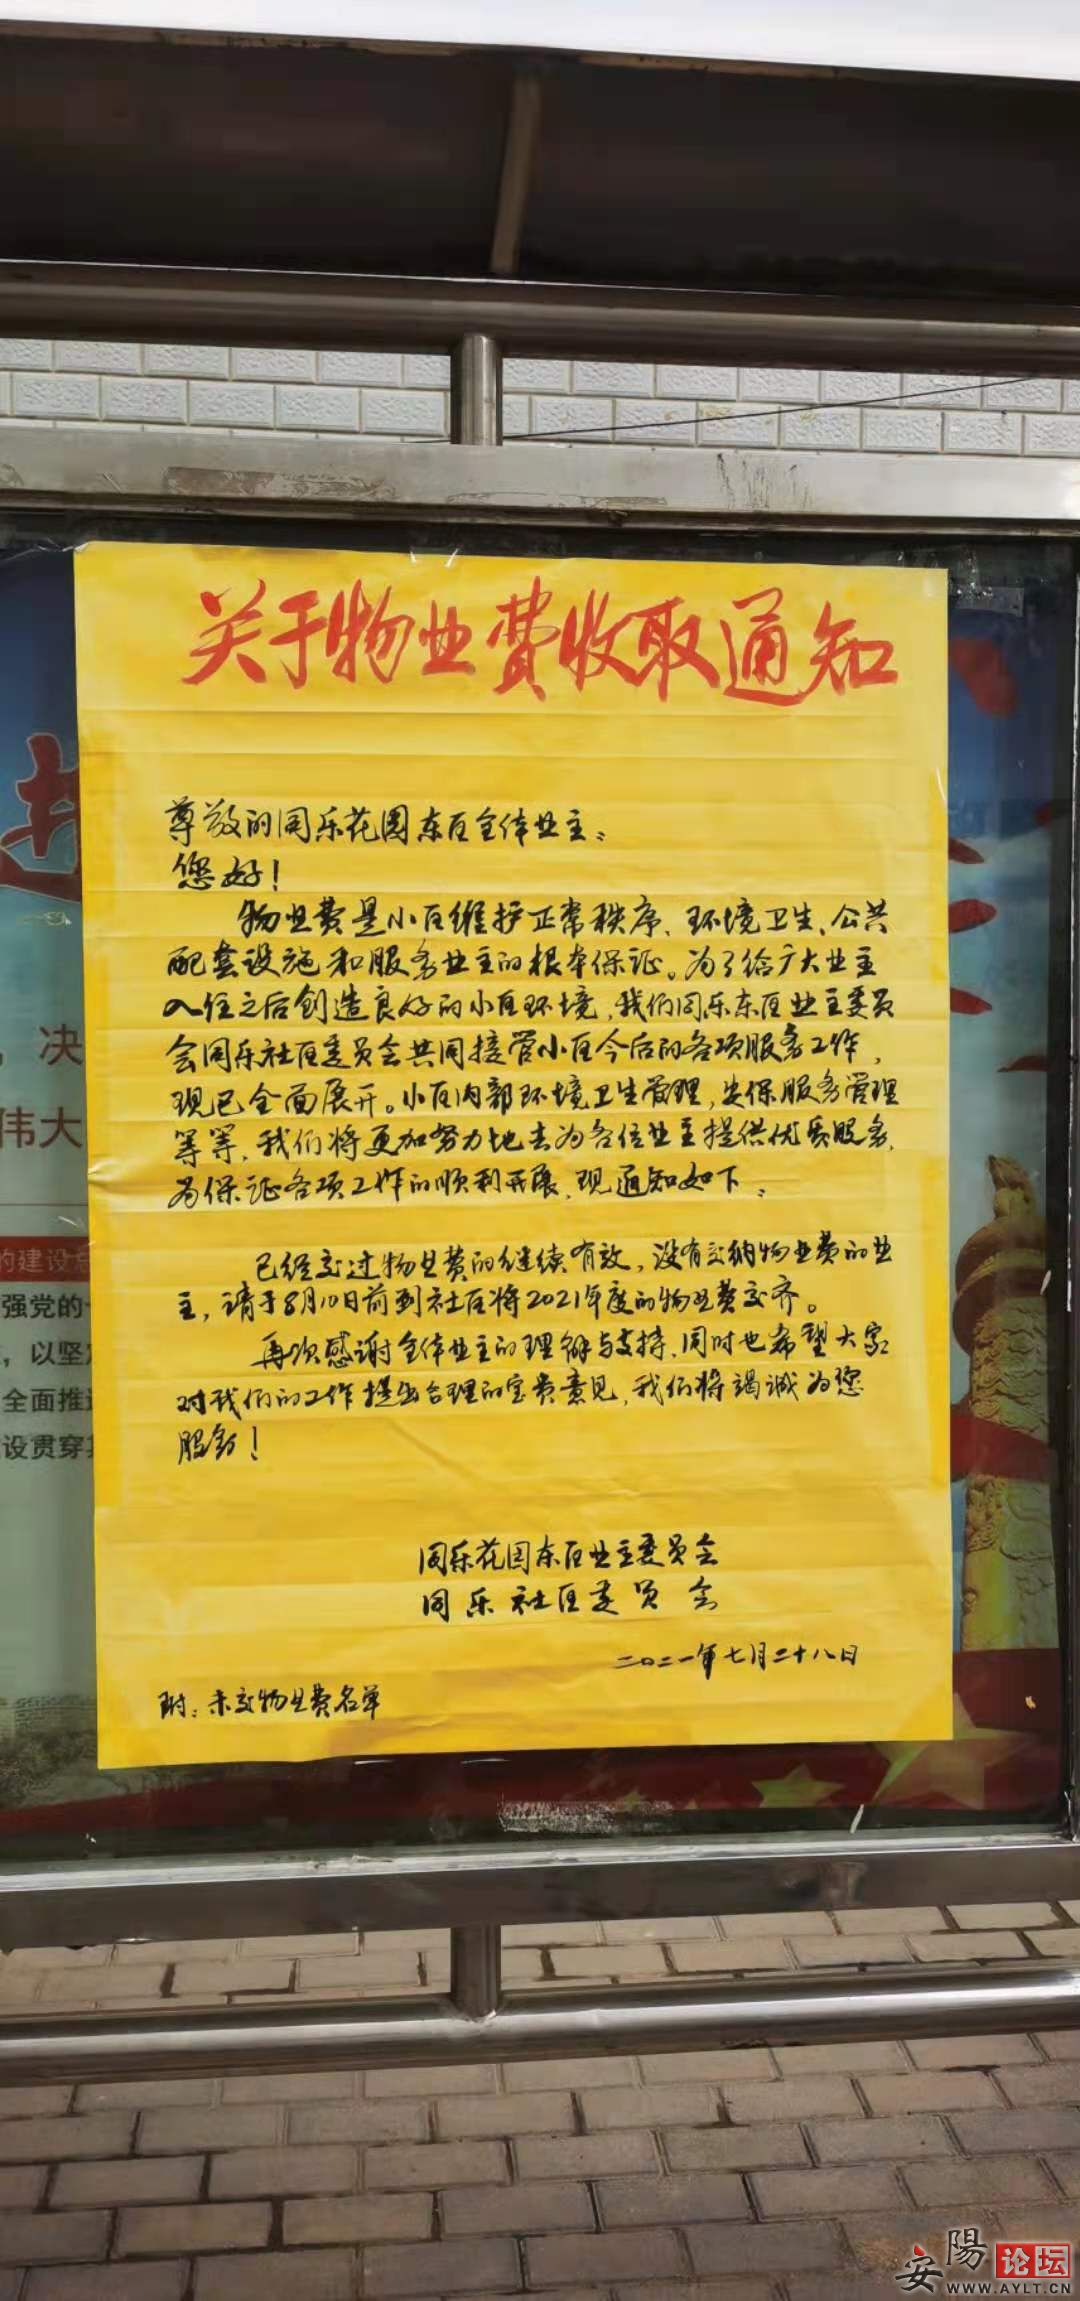 关于物业费收取通知
尊敬的同乐花园东区全体业主：
您好！
物业费是小区维护正常秩序、环境卫生、公共
配套设施和服务业主的根本保证。为了给广大业主
入住之后创造良好的小区环境，我们同乐东区业主委员
会同乐社区委员会共同接管小区今后的各项服务工作，
现已全面展开。小区内部环境卫生管理，安保服务管理
等等，我们将更加努力地去为各位业主提供优质服务，
为保证各项工作的顺利开展，现通知如下：
已经交过物业费的继续有效，没有交纳物业费的业
主，请于8月10日前到社区将2021年度的物业费交齐。
再次感谢全体业主的理解与支持，同时也希望大家
对我们的工作提出合理的宝贵意见，我们将竭诚为您
服务！
同乐花园东区业主委员会
同乐社区委员会
二〇二一年七月二十八日
附：未交物业费名单
，决
伟大
的建设总
强党的
，以坚定
全面推进
设贯穿其
安陽论坛
WWW.AYLT.CN